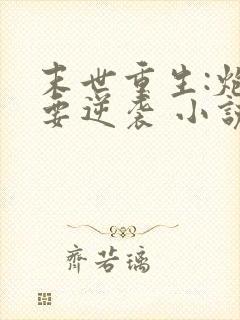 末世重生:炮
要逆袭 小説
齊若璃